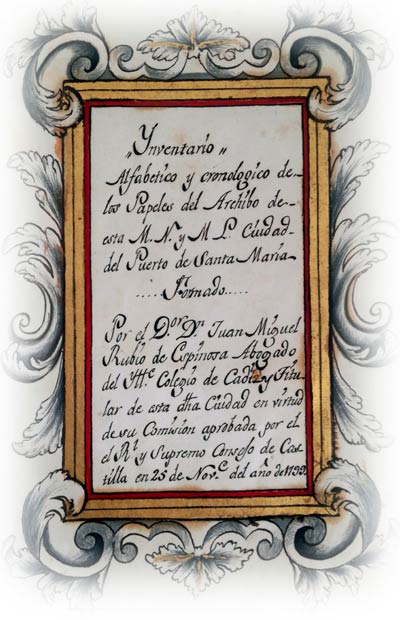 „Ynventario„
Alfabetico y cronologico de-
los Papeles del Archibo de-
esta M. N. y M L. Ciudad-
del Puerto de Santa Maria
..... Formado .....
Por el Dor. Dn. Juan Miguel
Rubio de Espinosa Abogado
del Ytte. Colegio de Cadiz y Titu-
lar de esta dha Ciudad en virtud
de su Comision aprobada por el
el Rl. y Supremo Consejo de Cas-
tilla en 25 de Nove. del año de